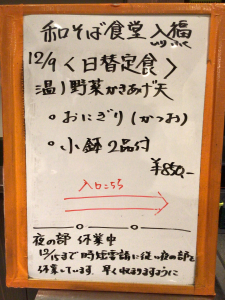 和そば食堂 入福
いり ふく
12/9 〈日替定食〉
温）野菜かきあげ天
。おにぎり（かつお）
。小鉢2品付
¥850,-
入口こちら
夜の部 休業中
12/15まで時短要請に従い夜の部を
休業しています。早く収まりますように